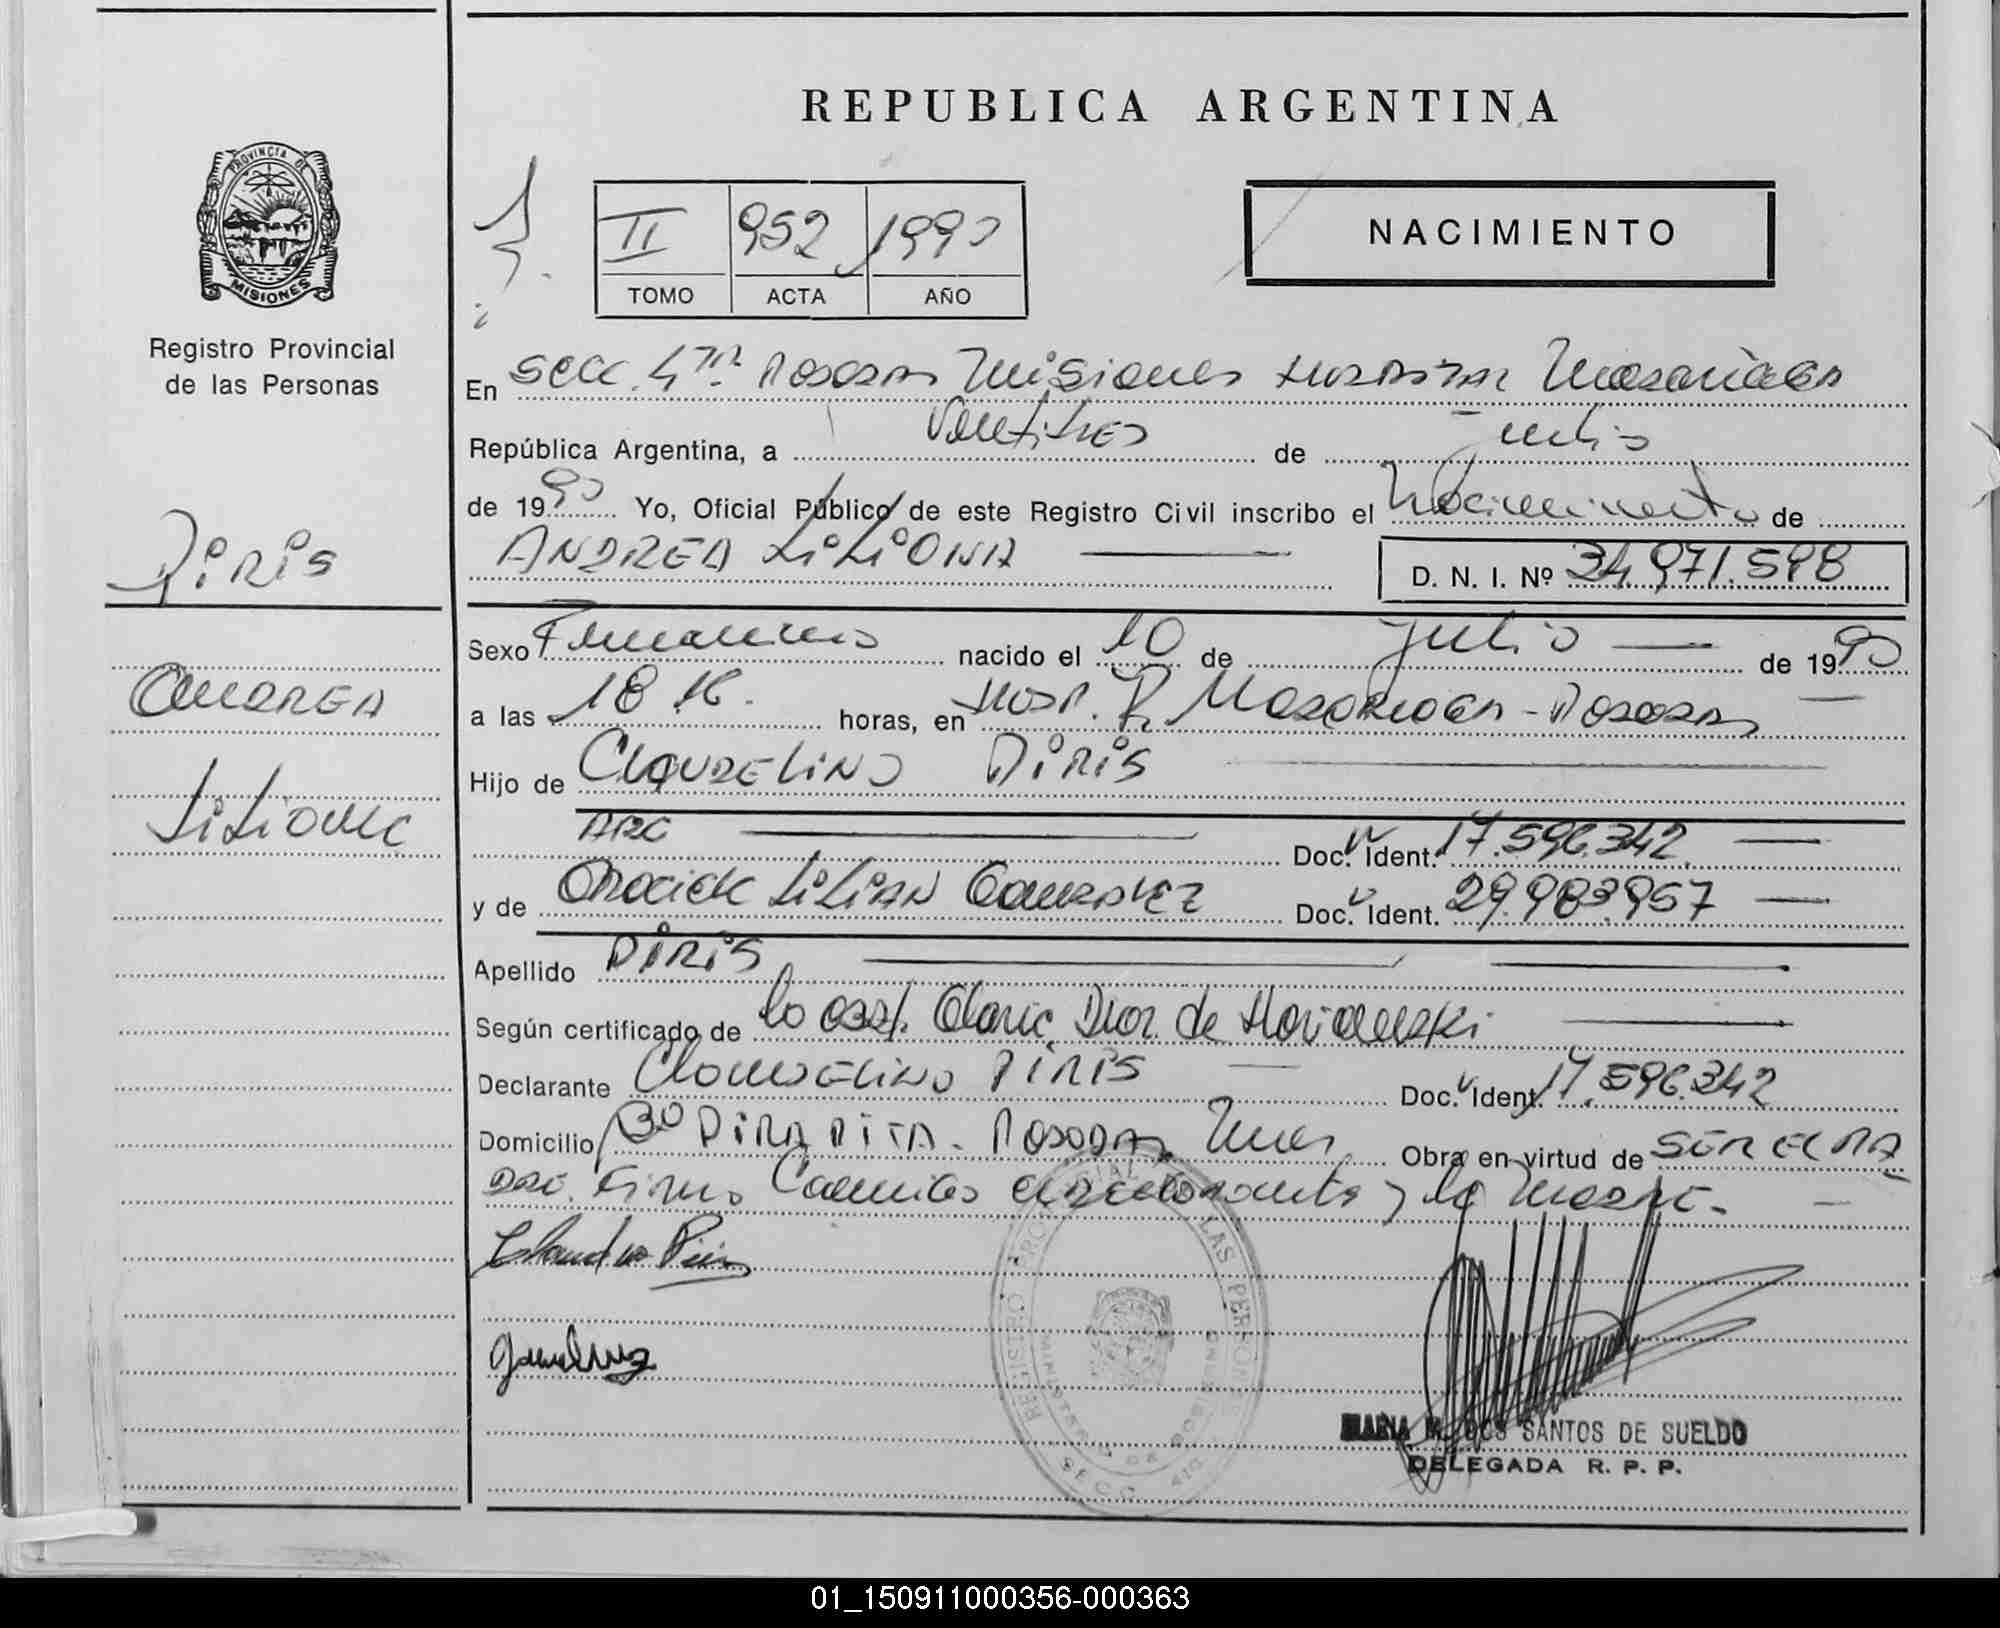 REPUBLICA ARGENTINA
PROVINCIA DE
MISIONES
Registro Provincial
de las Personas
II 952 1990
TOMO ACTA AÑO
NACIMIENTO
En Secc. 4ta Posadas Misiones
República Argentina, a Veintitres de Julio
de 1990 Yo, Oficial Público de este Registro Civil inscribo el Nacimiento de
ANDREA LiLiANA
D. N. I. Nº 34.971.598
Piris
Andrea
Liliana
Sexo Femenino nacido el 10 de Julio de 1990
a las 18 horas, en Hosp. R. Madariaga - Posadas
Hijo de Claudelino Piris
ARG Doc. Ident. 17.596.342
y de Lilian Gonzalez Doc. Ident. 29.983.957
Apellido Piris
Según certificado de la obst. de
Declarante Claudelino Piris Doc. Ident. 17.596.342
Domicilio Bo Posadas Mnes Obra en virtud de SER EL PA
DRE. Firma y la Madre.
MARIA M. DOS SANTOS DE SUELDO
DELEGADA R. P. P.
REGISTRO PROVINCIAL LAS PERSONAS
MINISTERIO DE GOBIERNO
01_150911000356-000363